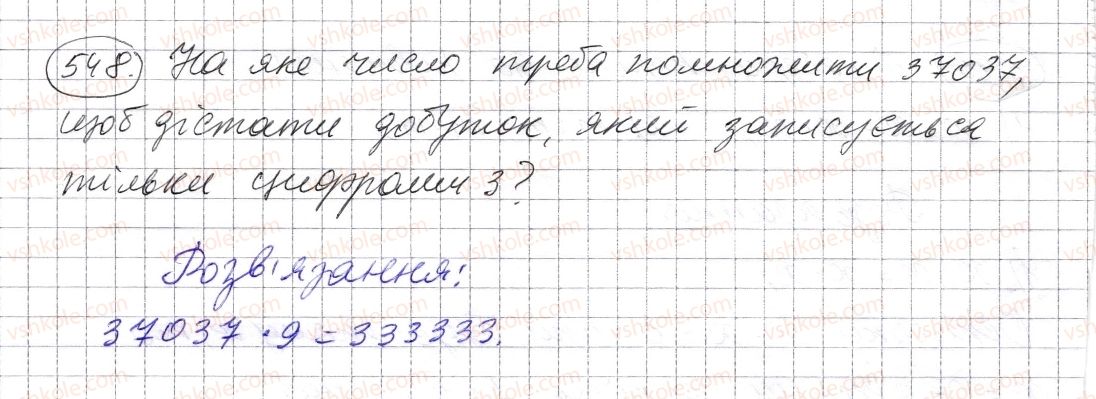 548. На яке число треба помножити 37037,
щоб дістати добуток, який записується
тільки цифрами 3?
Розв'язання:
37037 · 9 = 333333.